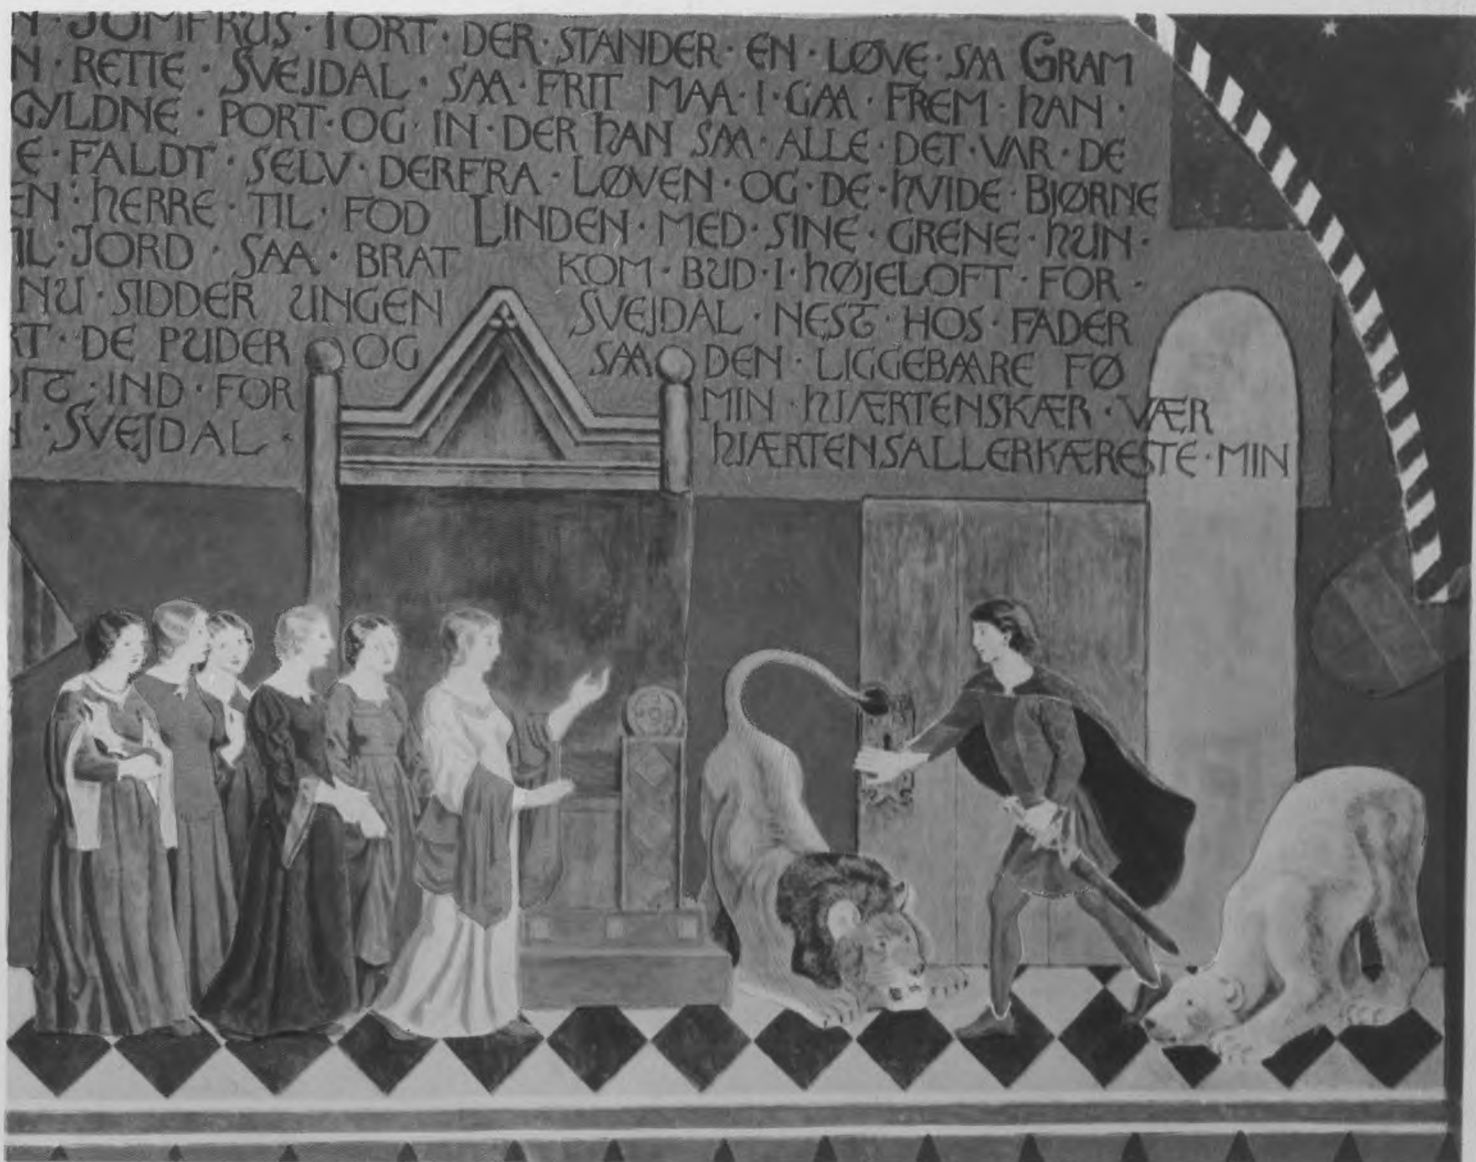 JOMFRUS · PORT · DER · STANDER · EN · LØVE · SAA GRAM
RETTE · SVEJDAL · SAA · FRIT MAA · I · GAA · FREM · HAN ·
GYLDNE · PORT · OG · IN · DER HAN SAA · ALLE · DET · VAR · DE
E · FALDT · SELV · DERFRA · LØVEN · OG · DE · HVIDE · BJØRNE
EN · HERRE · TIL · FOD LINDEN · MED · SINE · GRENE · HUN ·
IL · JORD · SAA · BRAT KOM · BUD · I · HØJELOFT · FOR ·
NU · SIDDER UNGEN SVEJDAL · NEST · HOS · FADER
DE PUDER OG SAA DEN · LIGGEBAARE FØ
IND · FOR MIN · HJÆRTENSKÆR · VÆR
SVEJDAL · HJÆRTENSALLERKÆRESTE · MIN